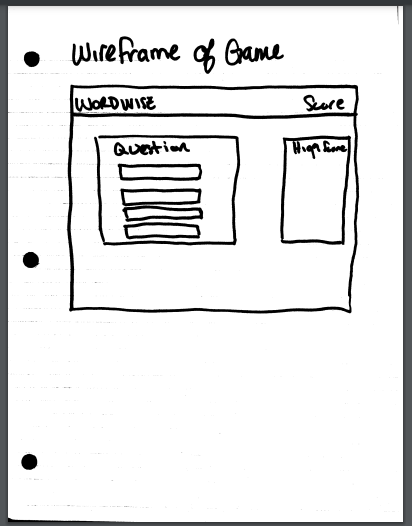 Wireframe of Game
WORDWISE Score
Question
High Score